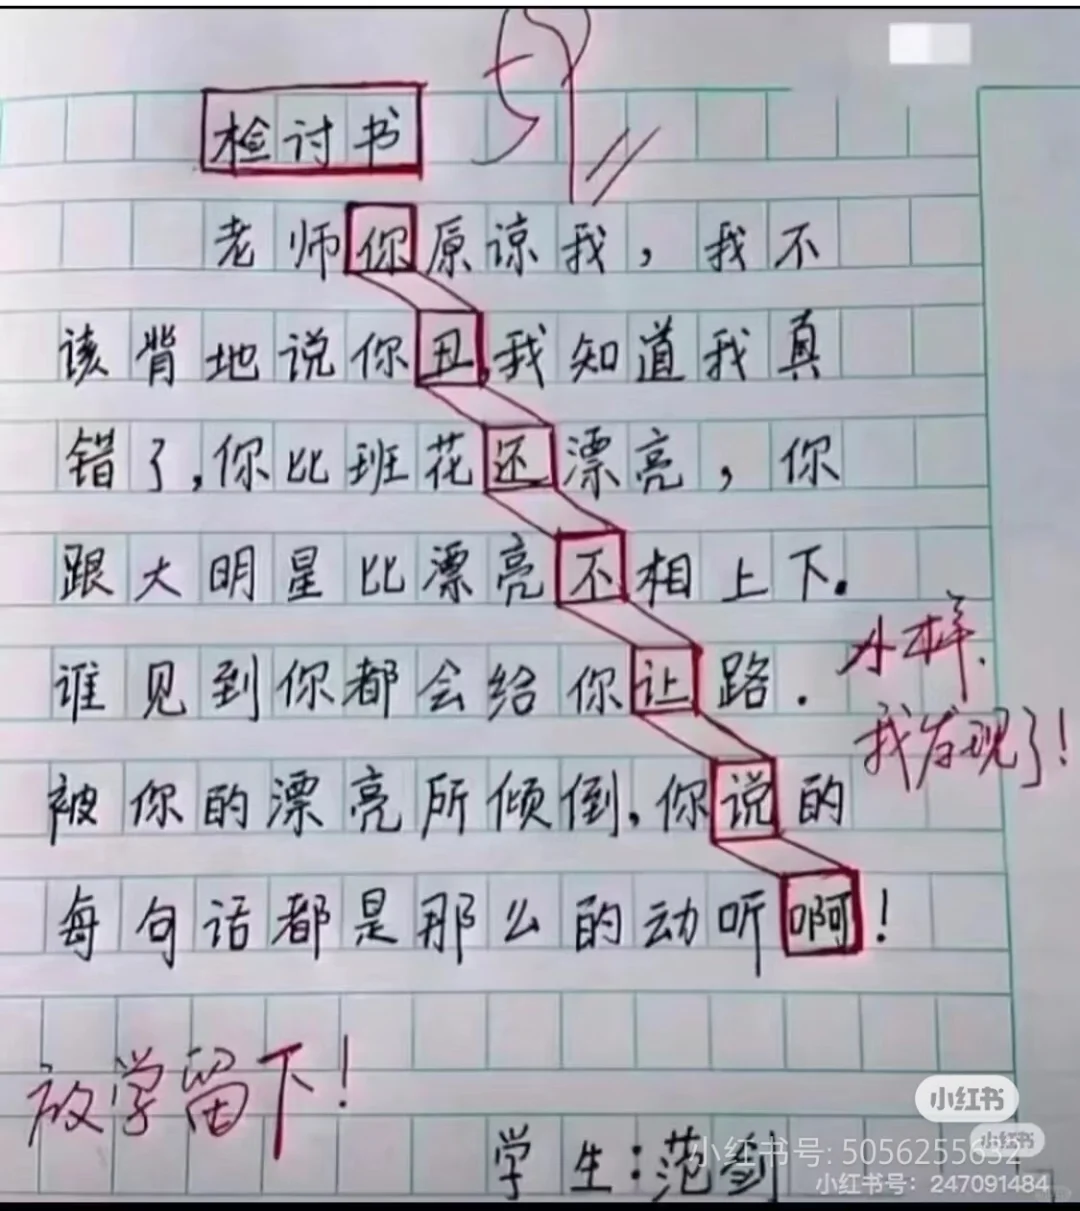 59
检讨书
老师你原谅我，我不
该背地说你丑，我知道我真
错了，你比班花还漂亮，你
跟大明星比漂亮不相上下。
谁见到你都会给你让路．
被你的漂亮所倾倒，你说的
每句话都是那么的动听啊！
小样．
我发现了！
放学留下！
学生：范剑
小红书
小红书
小红书号: 5056255632
小红书号: 247091484